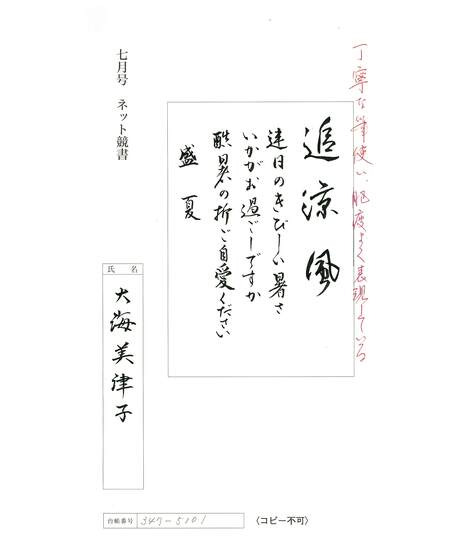 丁寧な筆使い、肥痩よく表現している
追涼風
連日のきびしい暑さ
いかがお過ごしですか
酷暑の折ご自愛ください
盛夏
七月号 ネット競書
氏名
大海美津子
台帳番号 347-5101
〈コピー不可〉